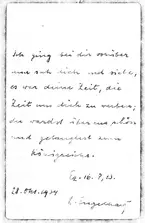 Ich ging bei dir vorüber
und sah dich und siehe,
es war deine Zeit, die
Zeit um dich zu werben;
du wardst überaus schön
und gelangtest zum
Königreiche.
Ez. 16. 7, 13.
28. Okt. 1934